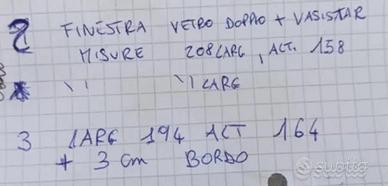 2 FINESTRA VETRO DOPPIO + VASISTAR
MISURE 208 LARG, ALT. 158
\\ \\ LARG
3 LARG 194 ALT 164
+ 3 cm BORDO
subito